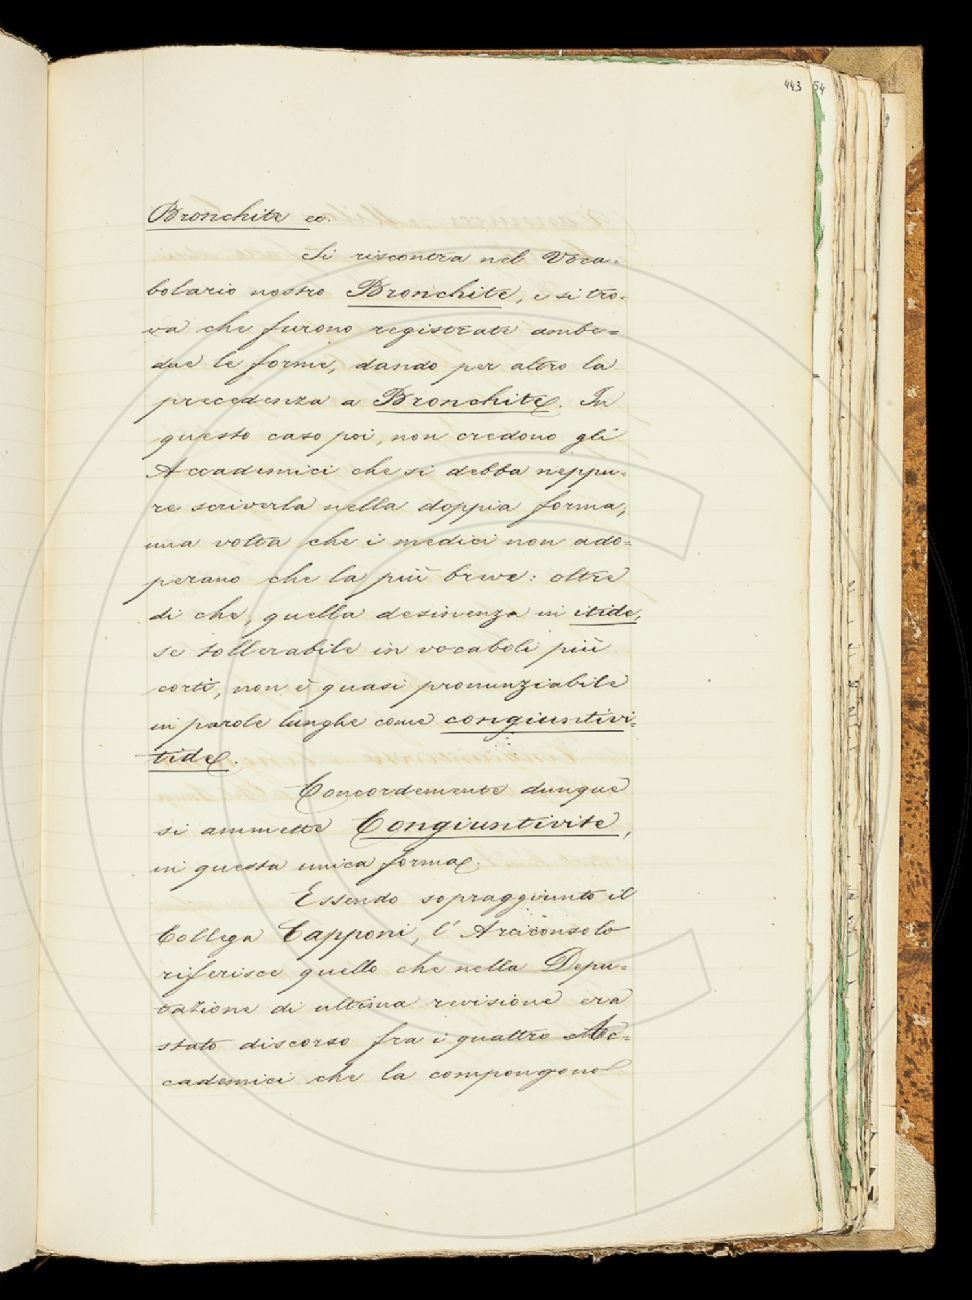 443 54
Bronchite ec.
Si riscontra nel Voca-
bolario nostro Bronchite, e si tro-
va che furono registrate ambe-
due le forme, dando per altro la
precedenza a Bronchite. In
questo caso poi, non credono gli
Accademici che si debba neppu-
re scriverla nella doppia forma,
una volta che i medici non ado-
perano che la più breve: oltre
di che, quella desinenza in itide,
se tollerabile in vocaboli più
corti, non è quasi pronunziabile
in parole lunghe come congiuntivi-
tide.
Concordemente dunque
si ammette Congiuntivite,
in questa unica forma.
Essendo sopraggiunto il
Collega Capponi, l'Arciconsolo
riferisce quello che nella Depu-
tazione di ultima revisione era
stato discorso fra i quattro Ac-
cademici che la compongono